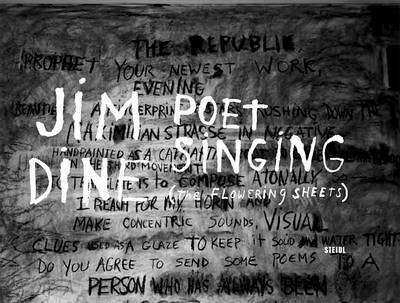 THE REPUBLIC,
PROPHET YOUR NEWEST WORK,
EVENING
JiM POEt
DiNE SiNGING
(the FLOWERING SHEETS)
PUSHING DOWN THE
STRASSE IN NEGATIVE
HANDPAINTED AS A
IS TO COMPOSE ATONALLY
I REACH FOR MY HORN AND
MAKE CONCENTRIC SOUNDS, VISUAL
CLUES USED AS A GLAZE TO KEEP it SOLID AND WATER TIGHT
STEIDL
DO YOU AGREE TO SEND SOME POEMS TO A
PERSON WHO HAS ALWAYS BEEN